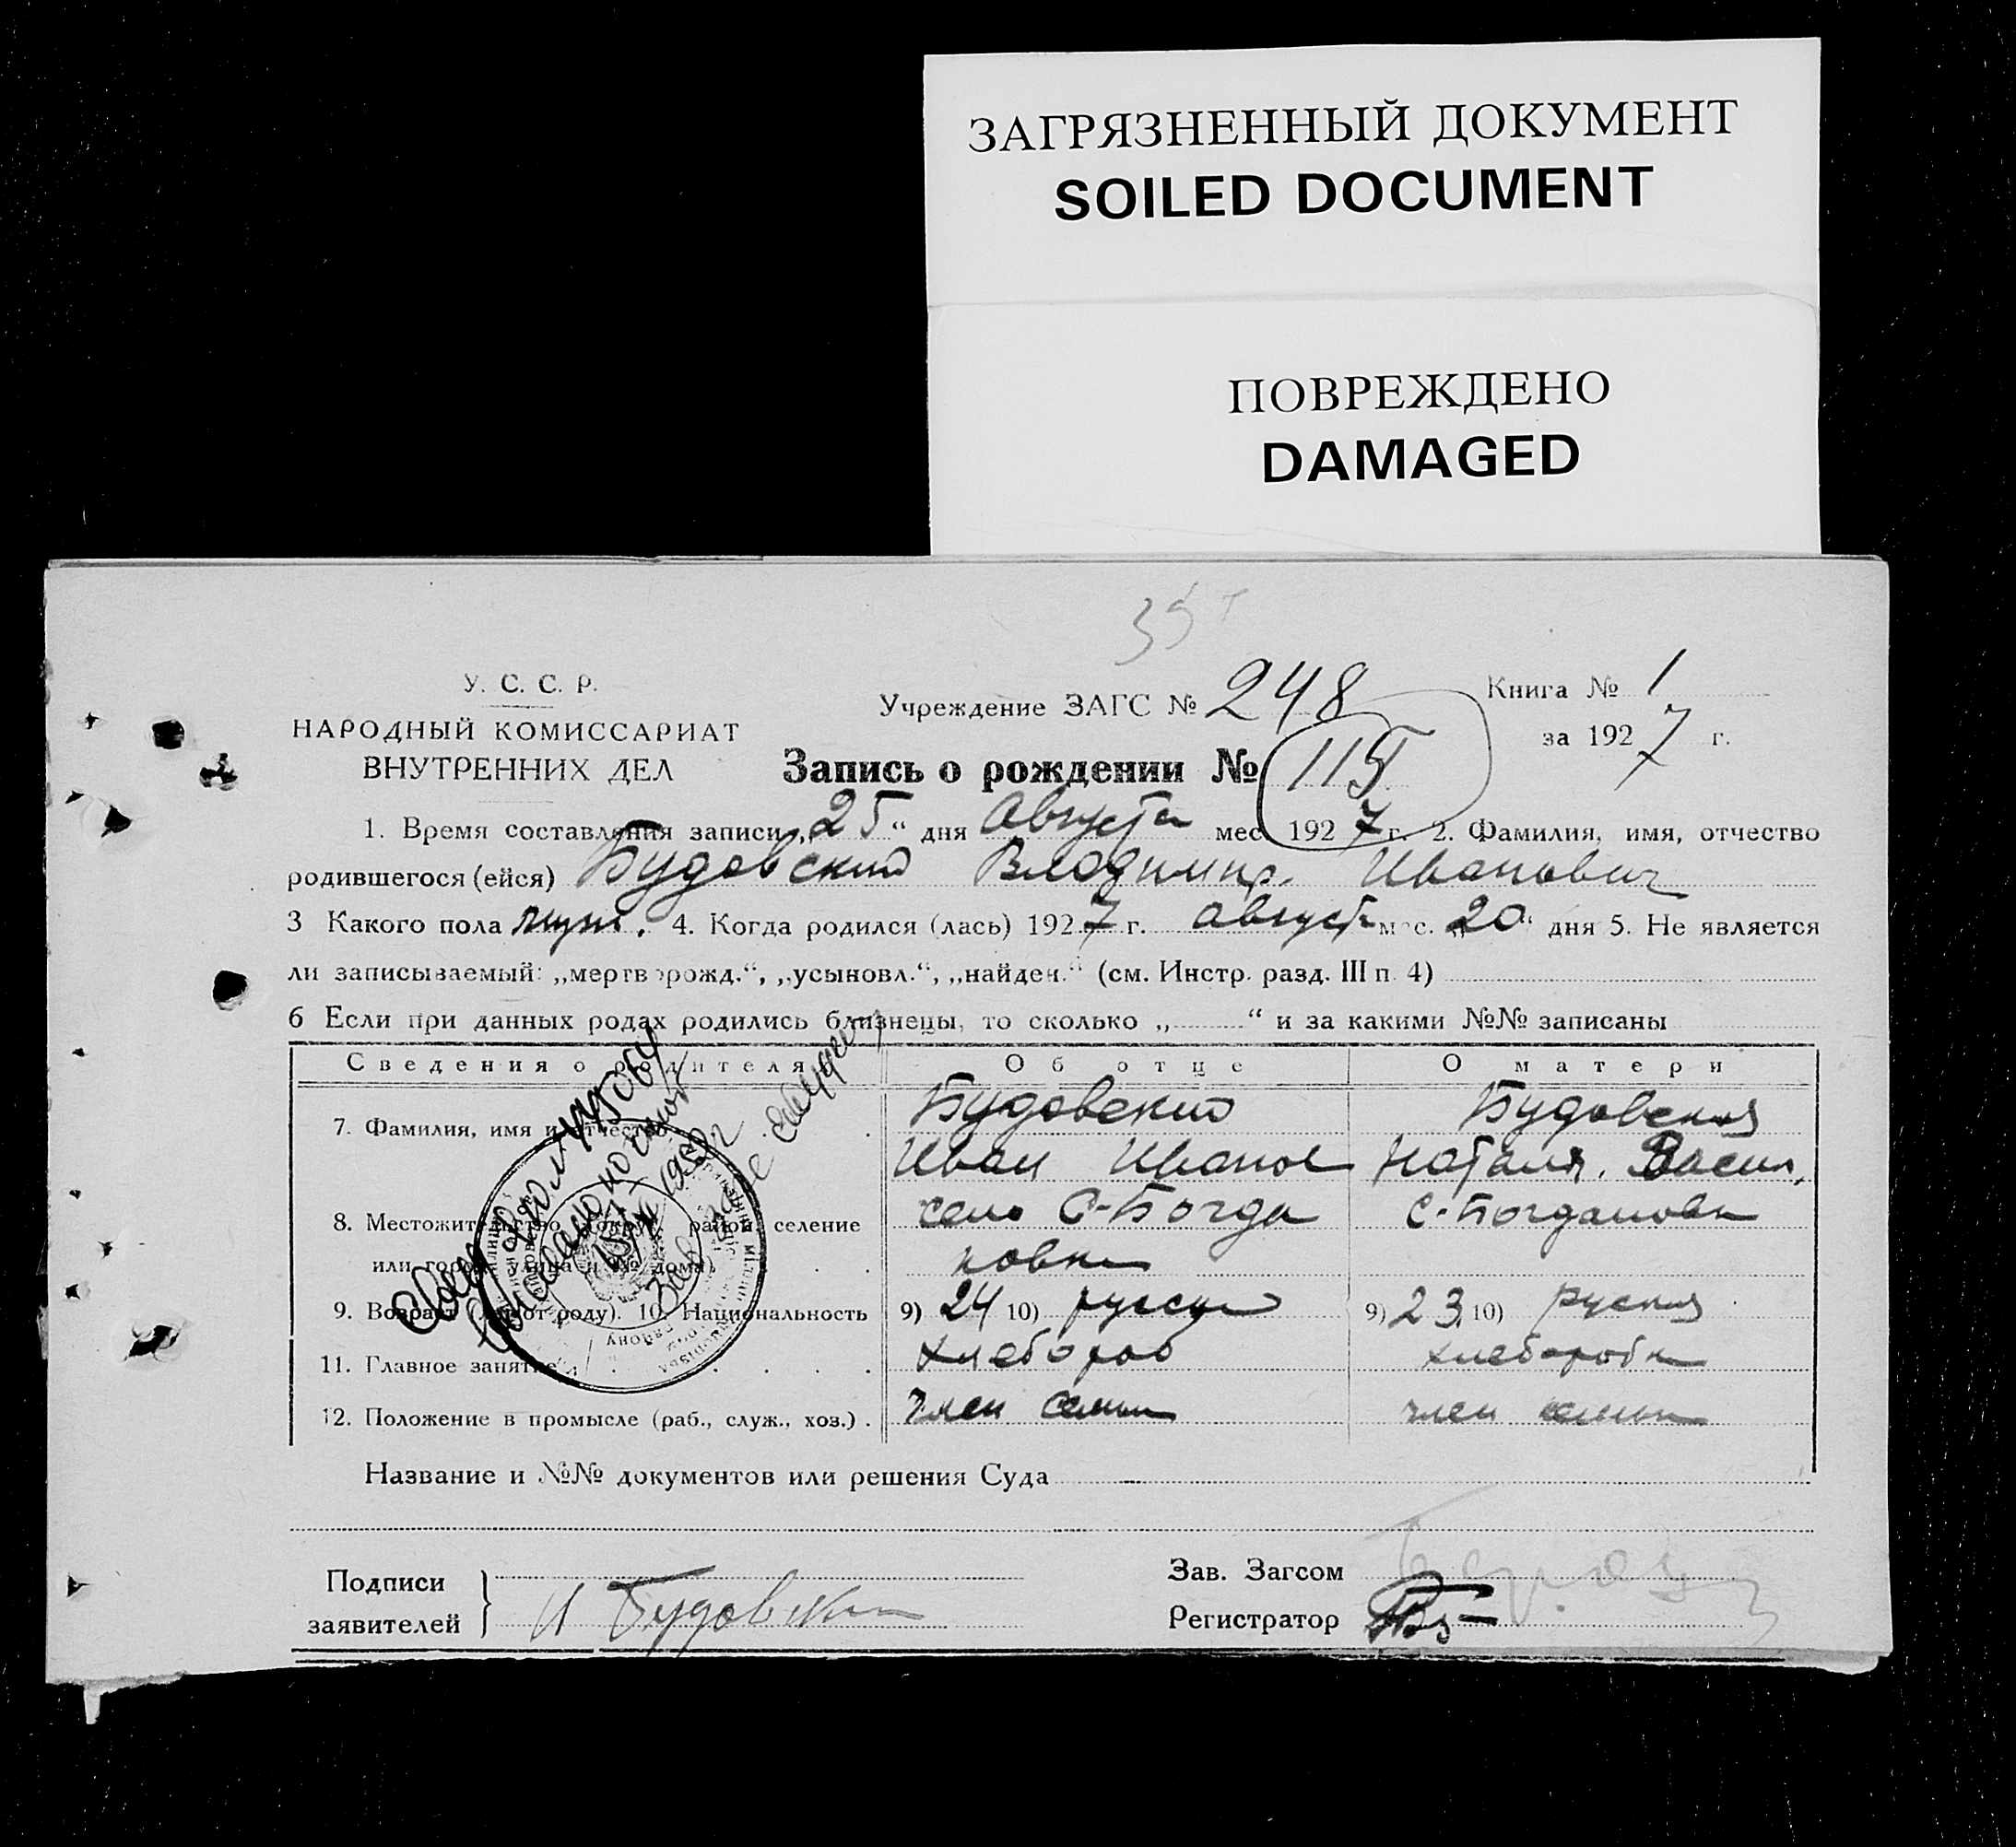 ЗАГРЯЗНЕННЫЙ ДОКУМЕНТ
SOILED DOCUMENT
ПОВРЕЖДЕНО
DAMAGED
35
У. С. С. Р.
НАРОДНЫЙ КОМИССАРИАТ
ВНУТРЕННИХ ДЕЛ
Учреждение ЗАГС № 248
Книга № 1
за 1927 г.
Запись о рождении № 115
1. Время составления записи „25“ дня Августа мес 1927 г. 2. Фамилия, имя, отчество
родившегося (ейся) Будовский Владимир Иванович
3 Какого пола муж. 4. Когда родился (лась) 1927 г. август мес. „20“ дня 5. Не является
ли записываемый: „мертворожд.“, „усыновл.“, „найден.“ (см. Инстр. разд. III п. 4)
6 Если при данных родах родились близнецы, то сколько „ “ и за какими №№ записаны
Сведения о родителях Об отце О матери
7. Фамилия, имя и отчество Будовский Будовская
Иван Иванов Наталя. Васил.
8. Местожительство (округ, район, селение село С-Богда С-Богдановка
или город, улица и № дома) новка
9. Возраст (лет от роду). 10. Национальность 9) 24 10) русский 9) 23 10) руская
11. Главное занятие хлебороб хлеборобка
12. Положение в промысле (раб., служ., хоз.) член семьи член семьи
Название и №№ документов или решения Суда
Подписи
заявителей
И Будовский
Зав. Загсом
Регистратор